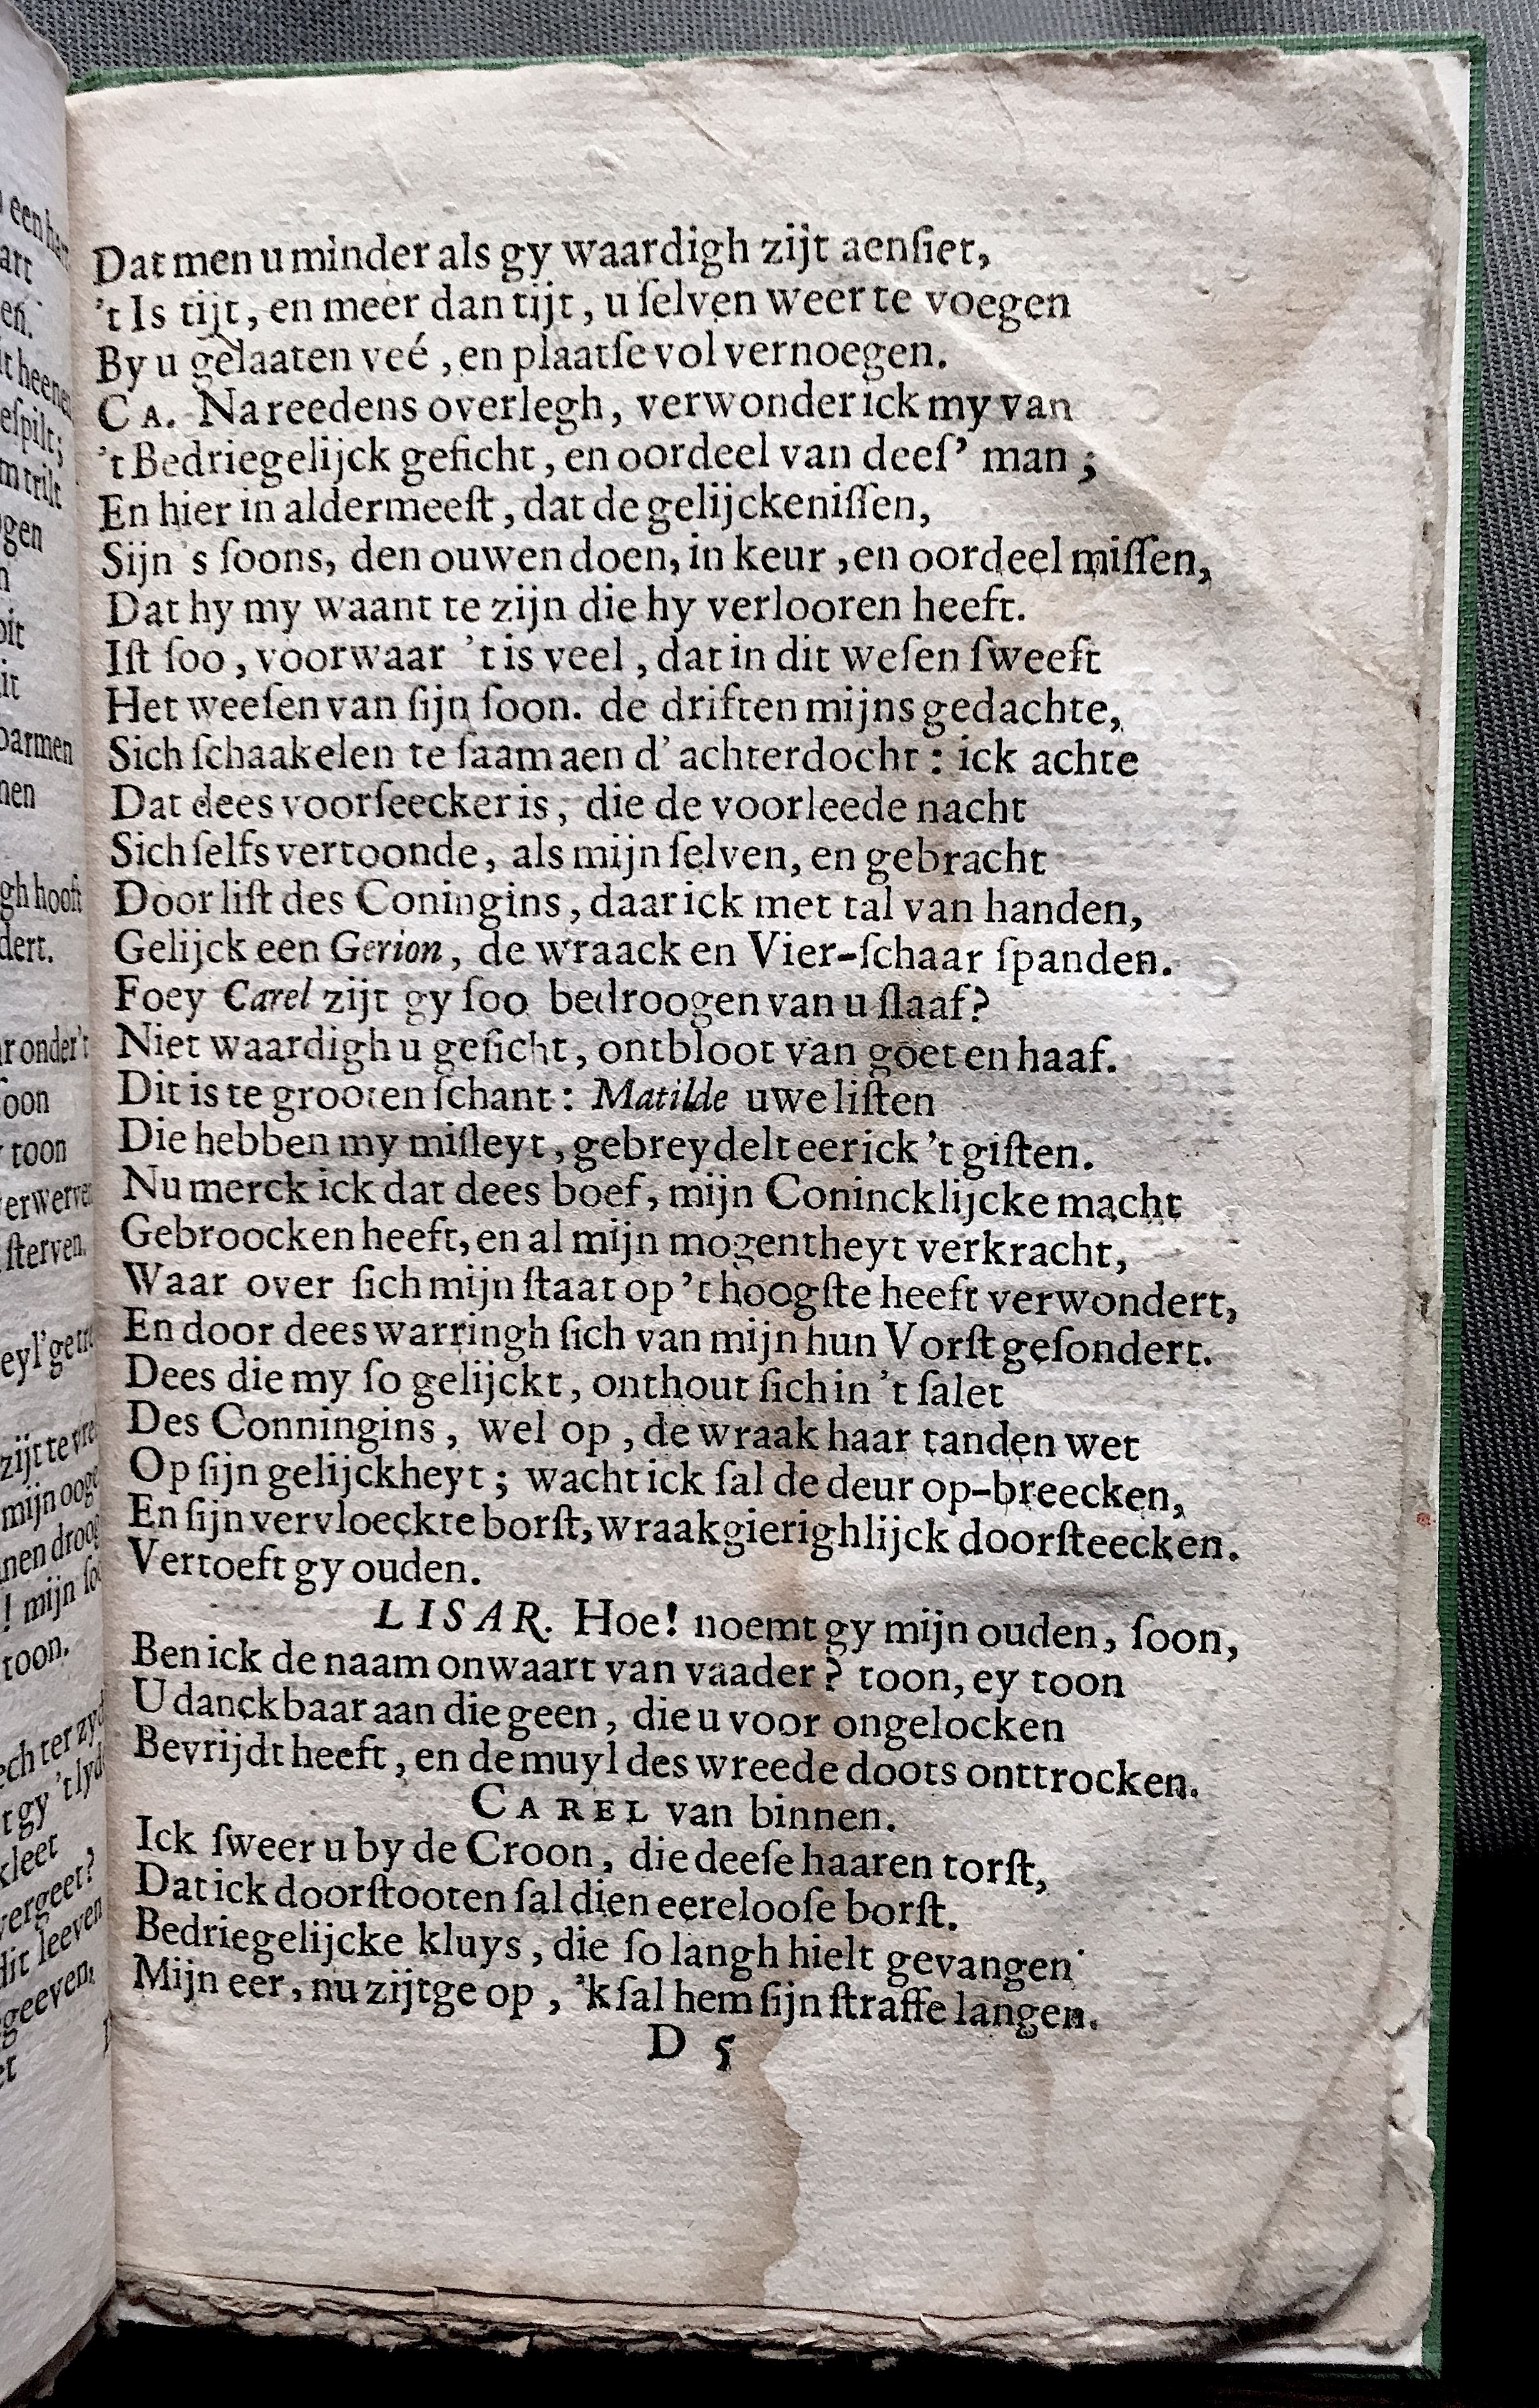 een
art
en.
t heenen
eſpilt;
m trilt
gen
n
oit
it
barmen
nen
gh hooft
dert.
r onder't
ſoon
toon
erwerven
ſterven.
eyl'
zijt te
mijn
nen
! mijn
toon.
echter
t gy 't
kleet
vergeet?
dit leeven
geeven,
et
Dat men u minder als gy waardigh zijt aenſiet,
't Is tijt, en meer dan tijt, u ſelven weer te voegen
By u gelaaten veé, en plaatſe vol vernoegen.
CA. Na reedens overlegh, verwonder ick my van
't Bedriegelijck geſicht, en oordeel van deeſ' man;
En hier in aldermeeſt, dat de gelijckeniſſen,
Sijn 's ſoons, den ouwen doen, in keur, en oordeel miſſen,
Dat hy my waant te zijn die hy verlooren heeft.
Iſt ſoo, voorwaar 't is veel, dat in dit weſen ſweeft
Het weeſen van ſijn ſoon. de driften mijns gedachte,
Sich ſchaakelen te ſaam aen d' achterdocht: ick achte
Dat dees voorſeecker is, die de voorleede nacht
Sich ſelfs vertoonde, als mijn ſelven, en gebracht
Door liſt des Coningins, daar ick met tal van handen,
Gelijck een Gerion, de wraack en Vier-ſchaar ſpanden.
Foey Carel zijt gy ſoo bedroogen van u ſlaaf?
Niet waardigh u geſicht, ontbloot van goet en haaf.
Dit is te grooten ſchant: Matilde uwe liſten
Die hebben my miſleyt, gebreydelt eer ick 't giſten.
Nu merck ick dat dees boef, mijn Conincklijcke macht
Gebroocken heeft, en al mijn mogentheyt verkracht,
Waar over ſich mijn ſtaat op 't hoogſte heeft verwondert,
En door dees warringh ſich van mijn hun Vorſt geſondert.
Dees die my ſo gelijckt, onthout ſich in 't ſalet
Des Conningins, wel op, de wraak haar tanden wet
Op ſijn gelijckheyt; wacht ick ſal de deur op-breecken,
En ſijn vervloeckte borſt, wraakgierighlijck doorſteecken.
Vertoeft gy ouden.
LISAR. Hoe! noemt gy mijn ouden, ſoon,
Ben ick de naam onwaart van vaader? toon, ey toon
U danckbaar aan die geen, die u voor ongelocken
Bevrijdt heeft, en de muyl des wreede doots onttrocken.
CAREL van binnen.
Ick ſweer u by de Croon, die deeſe haaren torſt,
Dat ick doorſtooten ſal dien eerelooſe borſt.
Bedriegelijcke kluys, die ſo langh hielt gevangen
Mijn eer, nu zijtge op, 'k ſal hem ſijn ſtraffe langen.
D 5